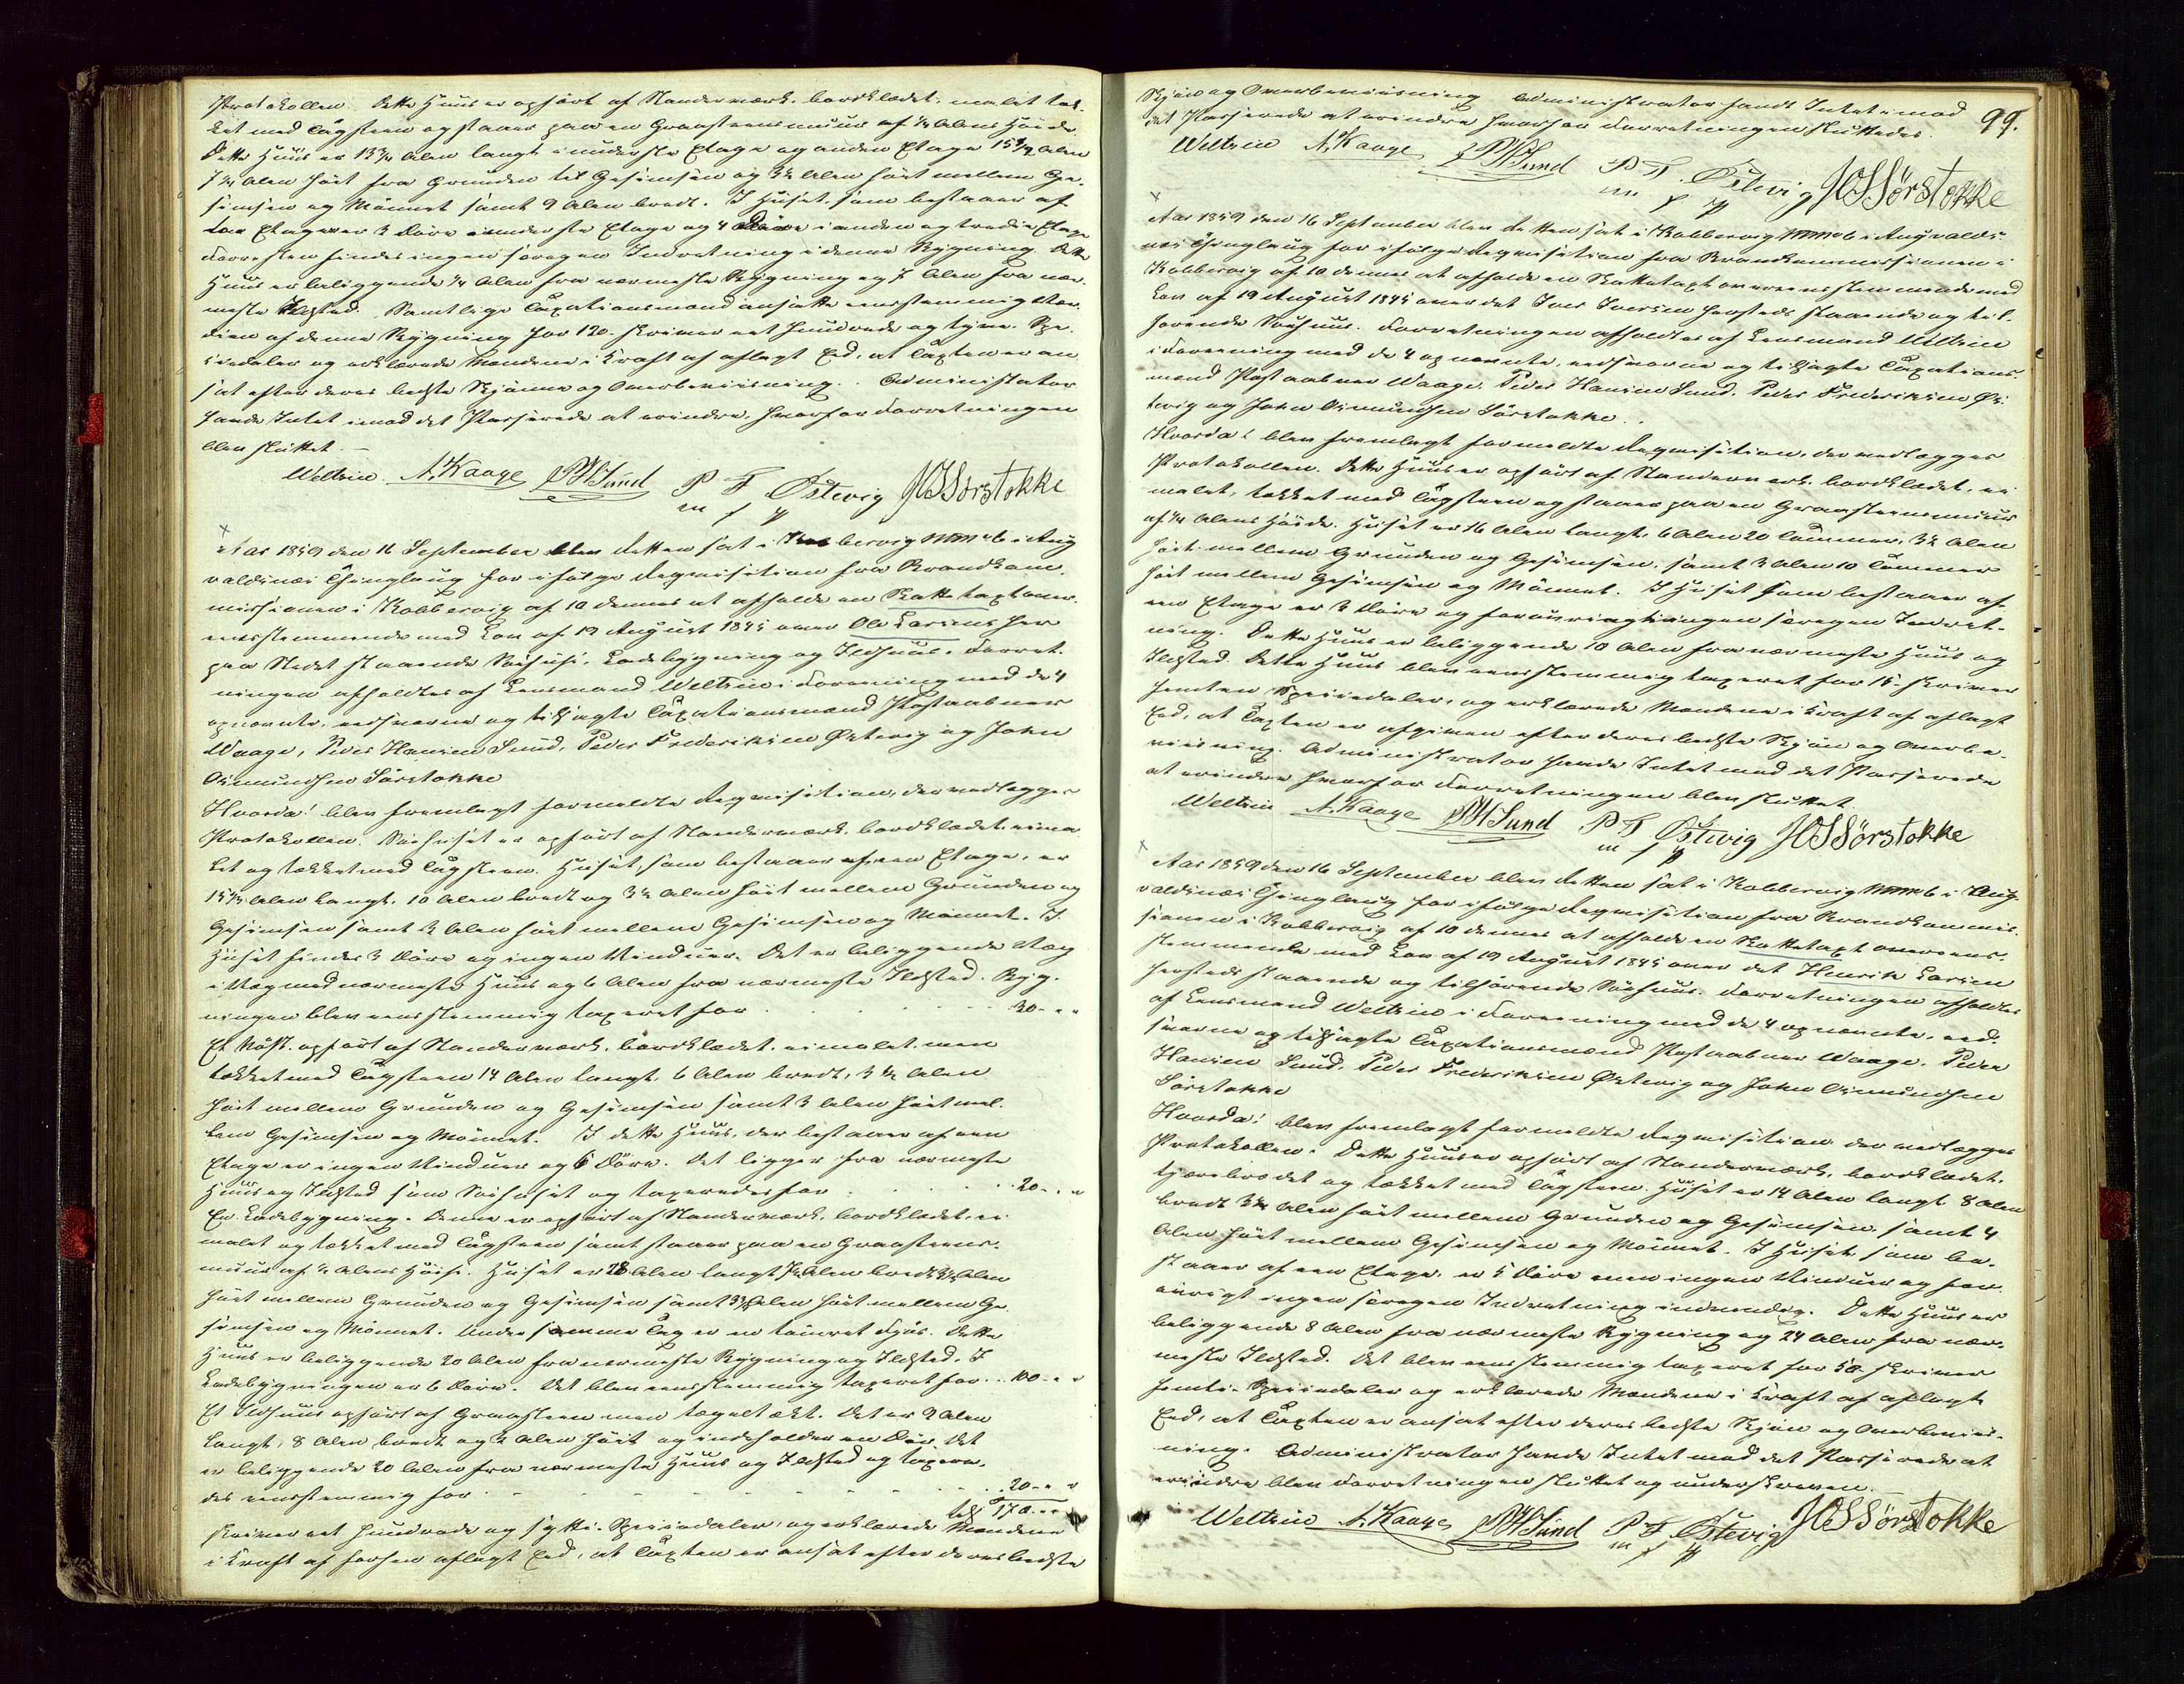 Protokollen. Dette Huus er opført af Standerværk, bordklædet, malet tæk-
ket med Tagsteen og staaer paa en Graasteensmuur af ½ Alens Høide
Dette Huus er 13¾ Alen langt i underste Etage og anden Etage 15¾ Alen
7½ Alen høit fra Grunden til Gesimsen og 3½ Alen høit mellem Ge-
simsen og Mønnet samt 9 Alen bredt. I Huset, som bestaaer af
Etager er 3 Døre i underste Etage og 4 Døre i anden og tredie Etage
Forresten findes ingen særegen Indretning i denne Bygning. Dette
Huus er beliggende ¼ Alen fra nærmeste Bygning og 7 Alen fra nær-
meste Ildsted. Samtlige Taxationsmænd ansatte eensstemmig Vær-
dien af denne Bygning for 120 skriver eet Hundrede og tyve Spe-
ciedaler og erklærede Mændene i Kraft af aflagt Eed, at Taxten er an
sat efter deres bedste Skjønne og Overbeviisning. Administrator
havde Intet imod det Passerede at erindre, hvorfor Forretningen
blev sluttet.
Weltzin A. Waage PH Sund P F Østevig JOSSørstokke
m f P
Aar 1859 den 16 September blev Retten sat i Kobbervig N 6 i Aug
valdsnæs Thinglaug for ifølge Reqvisition fra Brandkom-
missionen i Kobbervig af 10 dennes at afholde en Skattetaxt over-
eensstemmende med Lov af 19 August 1845 over Ole Larsens her
paa Stedet staaende Søehuus, Ladebygning og Ildhuus. Forret-
ningen afholdtes af Lensmand Weltzin i Forening med de 4
opnævnte, eedsvorne og tilsagte Taxationsmænd Postaabner
Waage, Peder Hansen Sund, Peder Frederiksen Østevig og John
Osmundsen Sørstokke
Hvorda! blev fremlagt formeldte Reqvisition, der vedlægges
Protokollen. Søehuset er opført af Standerværk, bordklædet, uma
let og tækket med Tagsteen. Huset, som bestaaer af een Etage, er
15½ Alen langt, 10 Alen bredt og 3½ Alen høit mellem Grunden og
Gesimsen samt Alen høit mellem Gesimsen og Mønnet. I
Huset findes 3 Døre og ingen Vinduer. Det er beliggende Væg
i Væg med nærmeste Huus og 6 Alen fra nærmeste Ildsted. Byg-
ningen blev eensstemmig taxeret for . . . 30 - " "
Et Nøst, opført af Standerværk, bordklædet, ei malet, men
tækket med Tagsteen 14 Alen langt, 6 Alen bredt, 3½ Alen
høit mellem Grunden og Gesimsen samt 3 Alen høit mel-
lem Gesimsen og Mønnet. I dette Huus, der bestaaer af een
Etage er ingen Vinduer og 6 Døre. Det ligger fra nærmeste
Huus og Ildsted som Søehuset og taxeredes for . . . 20 - " "
En Ladebygning. Denne er opført af Standerværk, bordklædet, ei
malet og tækket med Tagsteen samt staaer paa en Graasteens-
muur af ½ Alens Høide. Huset er 28 Alen langt 7½ Alen bredt 3½ Alen
høit mellem Grunden og Gesimsen samt 3½ Alen høit mellem Ge-
simsen og Mønnet. Under samme Tag er en tømret Fjøs. Dette
Huus er beliggende 20 Alen fra nærmeste Bygning og Ildsted. I
Ladebygningen er 6 Døre. Det blev eensstemmig taxeret for . . 100 - " "
Et Ildhuus opført af Graasteen men tegeltækt. Det er 9 Alen
langt, 8 Alen bredt og Alen høit og indeholder en Dør. Det
er beliggende 20 Alen fra nærmeste Huus og Ildsted og taxere-
des eensstemmig for . . . 20 - " "
tils. 170 - "
skriver eet Hundrede og sytti Speciedaler, og erklærede Mændene
i Kraft af forhen aflagt Eed, at Taxten er ansat efter deres bedste
99.
Skjøn og Overbeviisning Administrator fandt Intet imod
det Passerede at erindre hvorfor Forretningen sluttedes.
Weltzin A. Waage PH Sund P F Østevig JOSSørstokke
m f P
Aar 1859 den 16 September blev Retten sat i Kobbervig N 6 i Augvalds-
næs Thinglaug for ifølge Reqvisition fra Brandkommissionen i
Kobbervig af 10 dennes at afholde en Skattetaxt overeensstemmende med
Lov af 19 August 1845 over det Iver Iversen hersteds staaende og til-
hørende Søehuus. Forretningen afholdtes af Lensmand Weltzin
i Forening med de 4 opnævnte, eedsvorne og tilsagte Taxations-
mænd Postaabner Waage, Peder Hansen Sund, Peder Frederiksen Øs-
tevig og John Osmundsen Sørstokke.
Hvorda! blev fremlagt formeldte Reqvisition, der vedlægges
Protokollen. Dette Huus er opført af Standerværk, bordklædet, ei
malet, tækket med Tagsteen og staaer paa en Graasteensmuur
af ½ Alens Høide. Huset er 16 Alen langt, 6 Alen 20 Tommer, 3½ Alen
høit mellem Grunden og Gesimsen, samt 3 Alen 10 Tommer
høit mellem Gesimsen og Mønnet. I Huset som bestaaer af
een Etage er 3 Døre og forøvrigt ingen særegen Indret-
ning. Dette Huus er beliggende 10 Alen fra nærmeste Huus og
Ildsted. Dette Huus blev eensstemmig taxeret for 15 skriver
femten Speciedaler, og erklærede Mændene i Kraft af aflagt
Eed, at Taxten er afgiven efter deres bedste Skjøn og Overbe-
viisning. Administrator havde Intet mod det Passerede
at erindre hvorfor Forretningen blev sluttet
Weltzin A. Waage PH Sund P F Østevig JOSSørstokke
m f P
Aar 1859 den 16 September blev Retten sat i Kobbervig N 6 i Aug-
valdsnæs Thinglaug for ifølge Reqvisition fra Brandkommis-
sionen i Kobbervig af 10 dennes at afholde en Skattetaxt overeens-
stemmende med Lov af 19 August 1845 over det Henrik Larsen
hersteds staaende og tilhørende Søehuus. Forretningen afholdtes
af Lensmand Weltzin i Forening med de 4 opnævnte, eed-
svorne og tilsagte Taxationsmænd Postaabner Waage, Peder
Hansen Sund, Peder Frederiksen Østevig og John Osmundsen
Sørstokke
Hvorda! blev fremlagt formeldte Reqvisition der vedlægges
Protokollen. Dette Huus er opført af Standerværk, bordklædet,
tjærebredet og tækket med Tagsteen. Huset er 14 Alen langt 8 Alen
bredt 3½ Alen høit mellem Grunden og Gesimsen, samt 4
Alen høit mellem Gesimsen og Mønnet. I Huset, som be-
staaer af een Etage, er 5 Døre men ingen Vinduer og for-
øvrigt ingen særegen Indretning indvendig. Dette Huus er
beliggende 8 Alen fra nærmeste Bygning og 24 Alen fra nær-
meste Ildsted. Det blev eensstemmig taxeret for 50 skriver
femti Speciedaler og erklærede Mændene i Kraft af aflagt
Eed, at Taxten er ansat efter deres bedste Skjøn og Overbeviis-
ning. Administrator havde Intet mod det Passerede at
erindre blev Forretningen sluttet og underskreven.
Weltzin A. Waage PH Sund P F Østevig JOSSørstokke
m f P